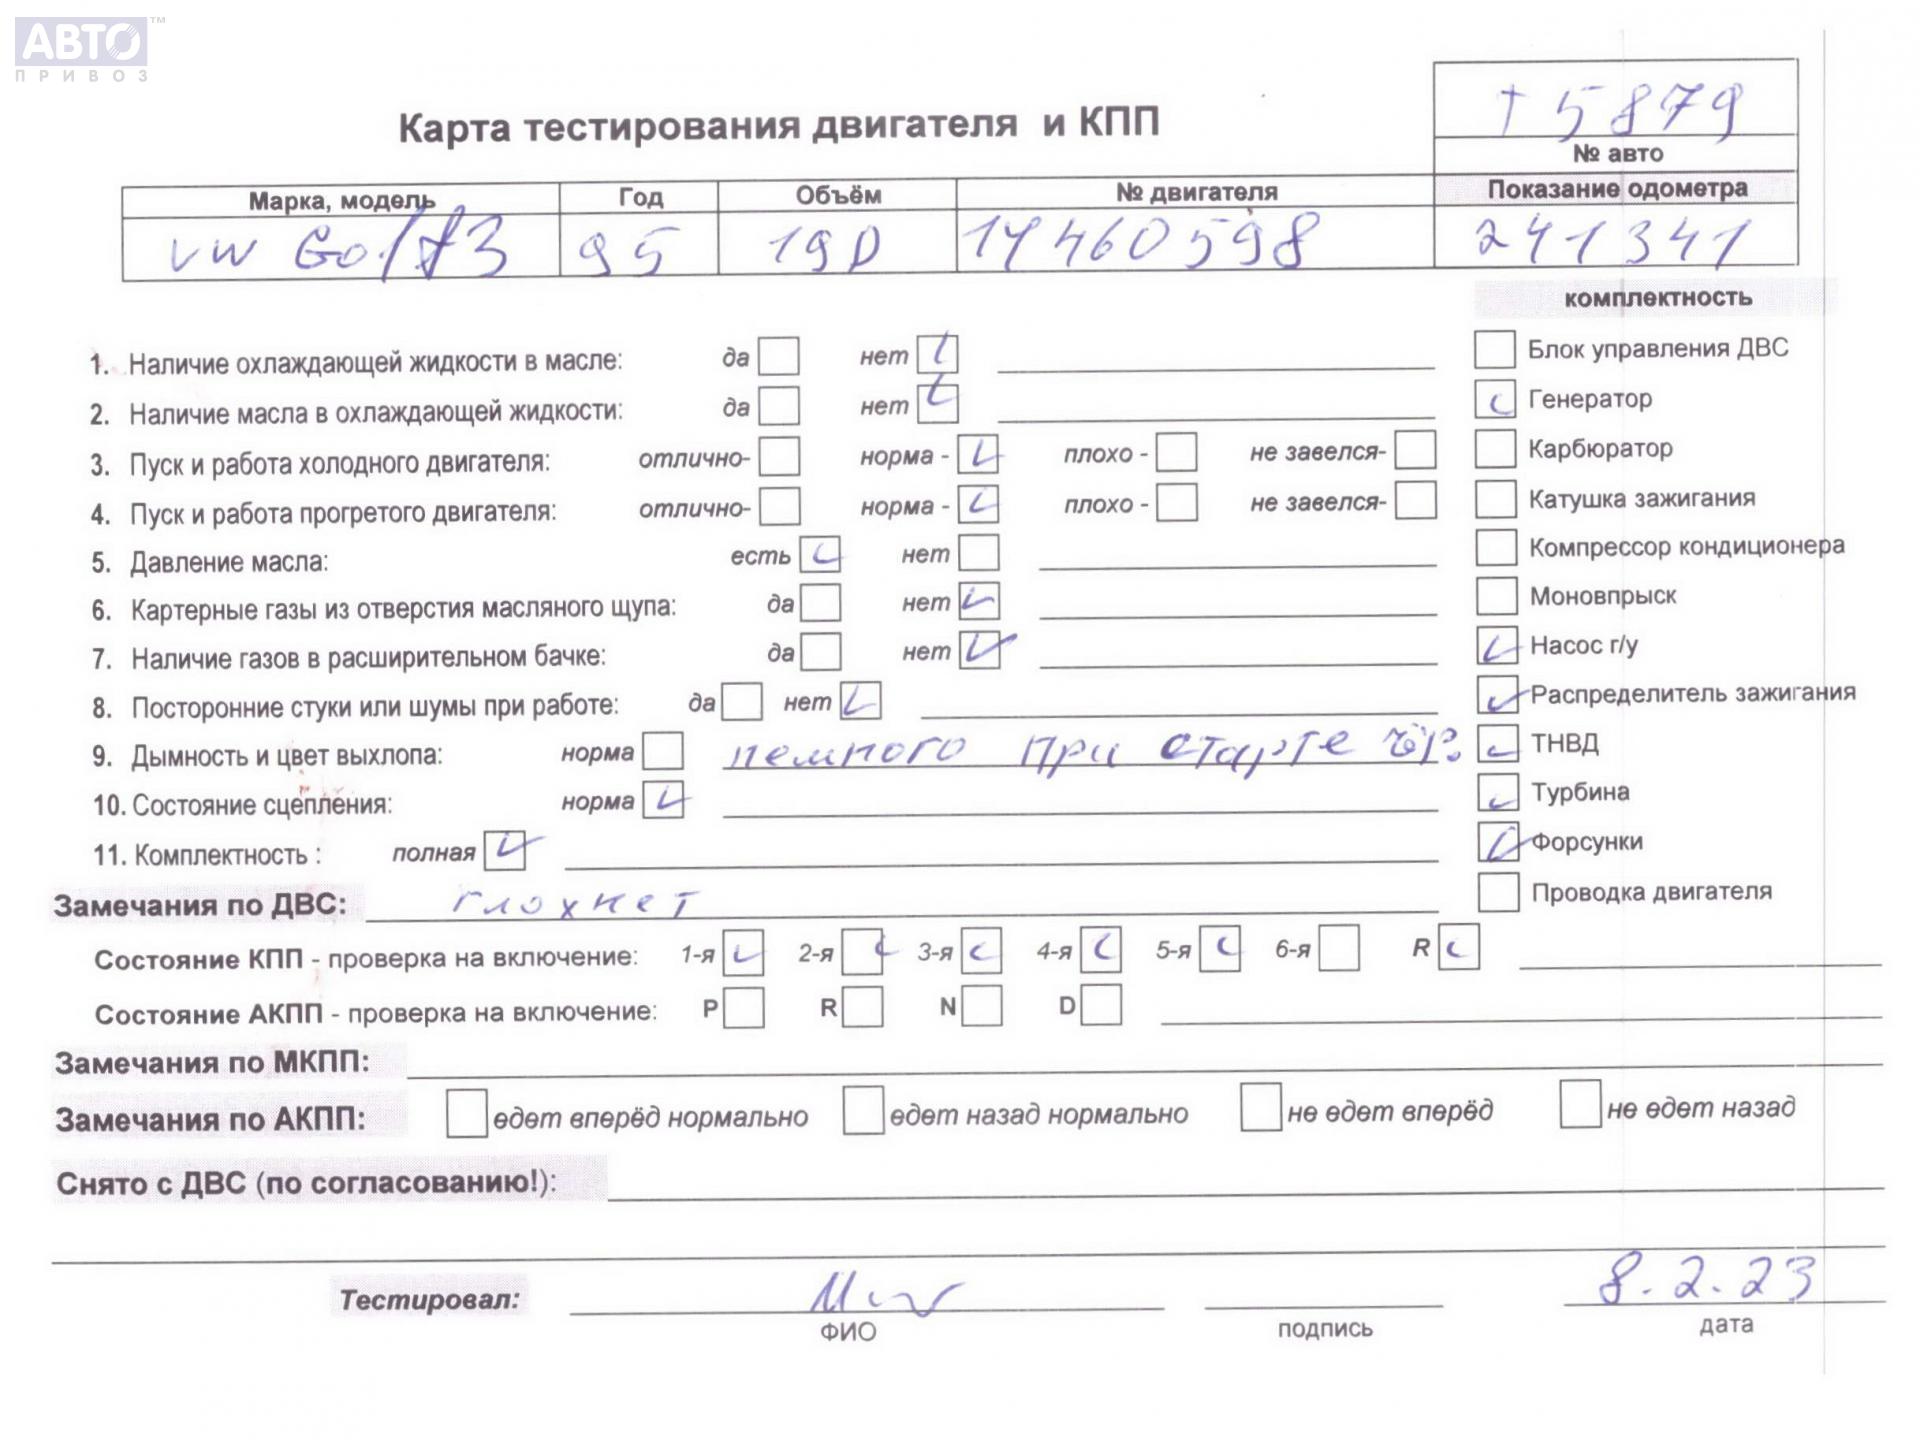 АВТО™
ПРИВОЗ
т 5879
Карта тестирования двигателя и КПП
№ авто
Марка, модель Год Объём № двигателя Показание одометра
VW Golf 3 95 19D 1Y460598 241341
комплектность
1. Наличие охлаждающей жидкости в масле: да нет
Блок управления ДВС
2. Наличие масла в охлаждающей жидкости: да нет
Генератор
3. Пуск и работа холодного двигателя: отлично- норма - плохо - не завелся-
Карбюратор
4. Пуск и работа прогретого двигателя: отлично- норма - плохо - не завелся-
Катушка зажигания
5. Давление масла: есть нет
Компрессор кондиционера
6. Картерные газы из отверстия масляного щупа: да нет
Моновпрыск
7. Наличие газов в расширительном бачке: да нет
Насос г/у
8. Посторонние стуки или шумы при работе: да нет
Распределитель зажигания
9. Дымность и цвет выхлопа: норма немного при старте
ТНВД
10. Состояние сцепления: норма
Турбина
11. Комплектность : полная
Форсунки
Замечания по ДВС: глохнет
Проводка двигателя
Состояние КПП - проверка на включение: 1-я 2-я 3-я 4-я 5-я 6-я R
Состояние АКПП - проверка на включение: P R N D
Замечания по МКПП:
Замечания по АКПП: едет вперёд нормально едет назад нормально не едет вперёд не едет назад
Снято с ДВС (по согласованию!):
Тестировал: 8.2.23
ФИО подпись дата